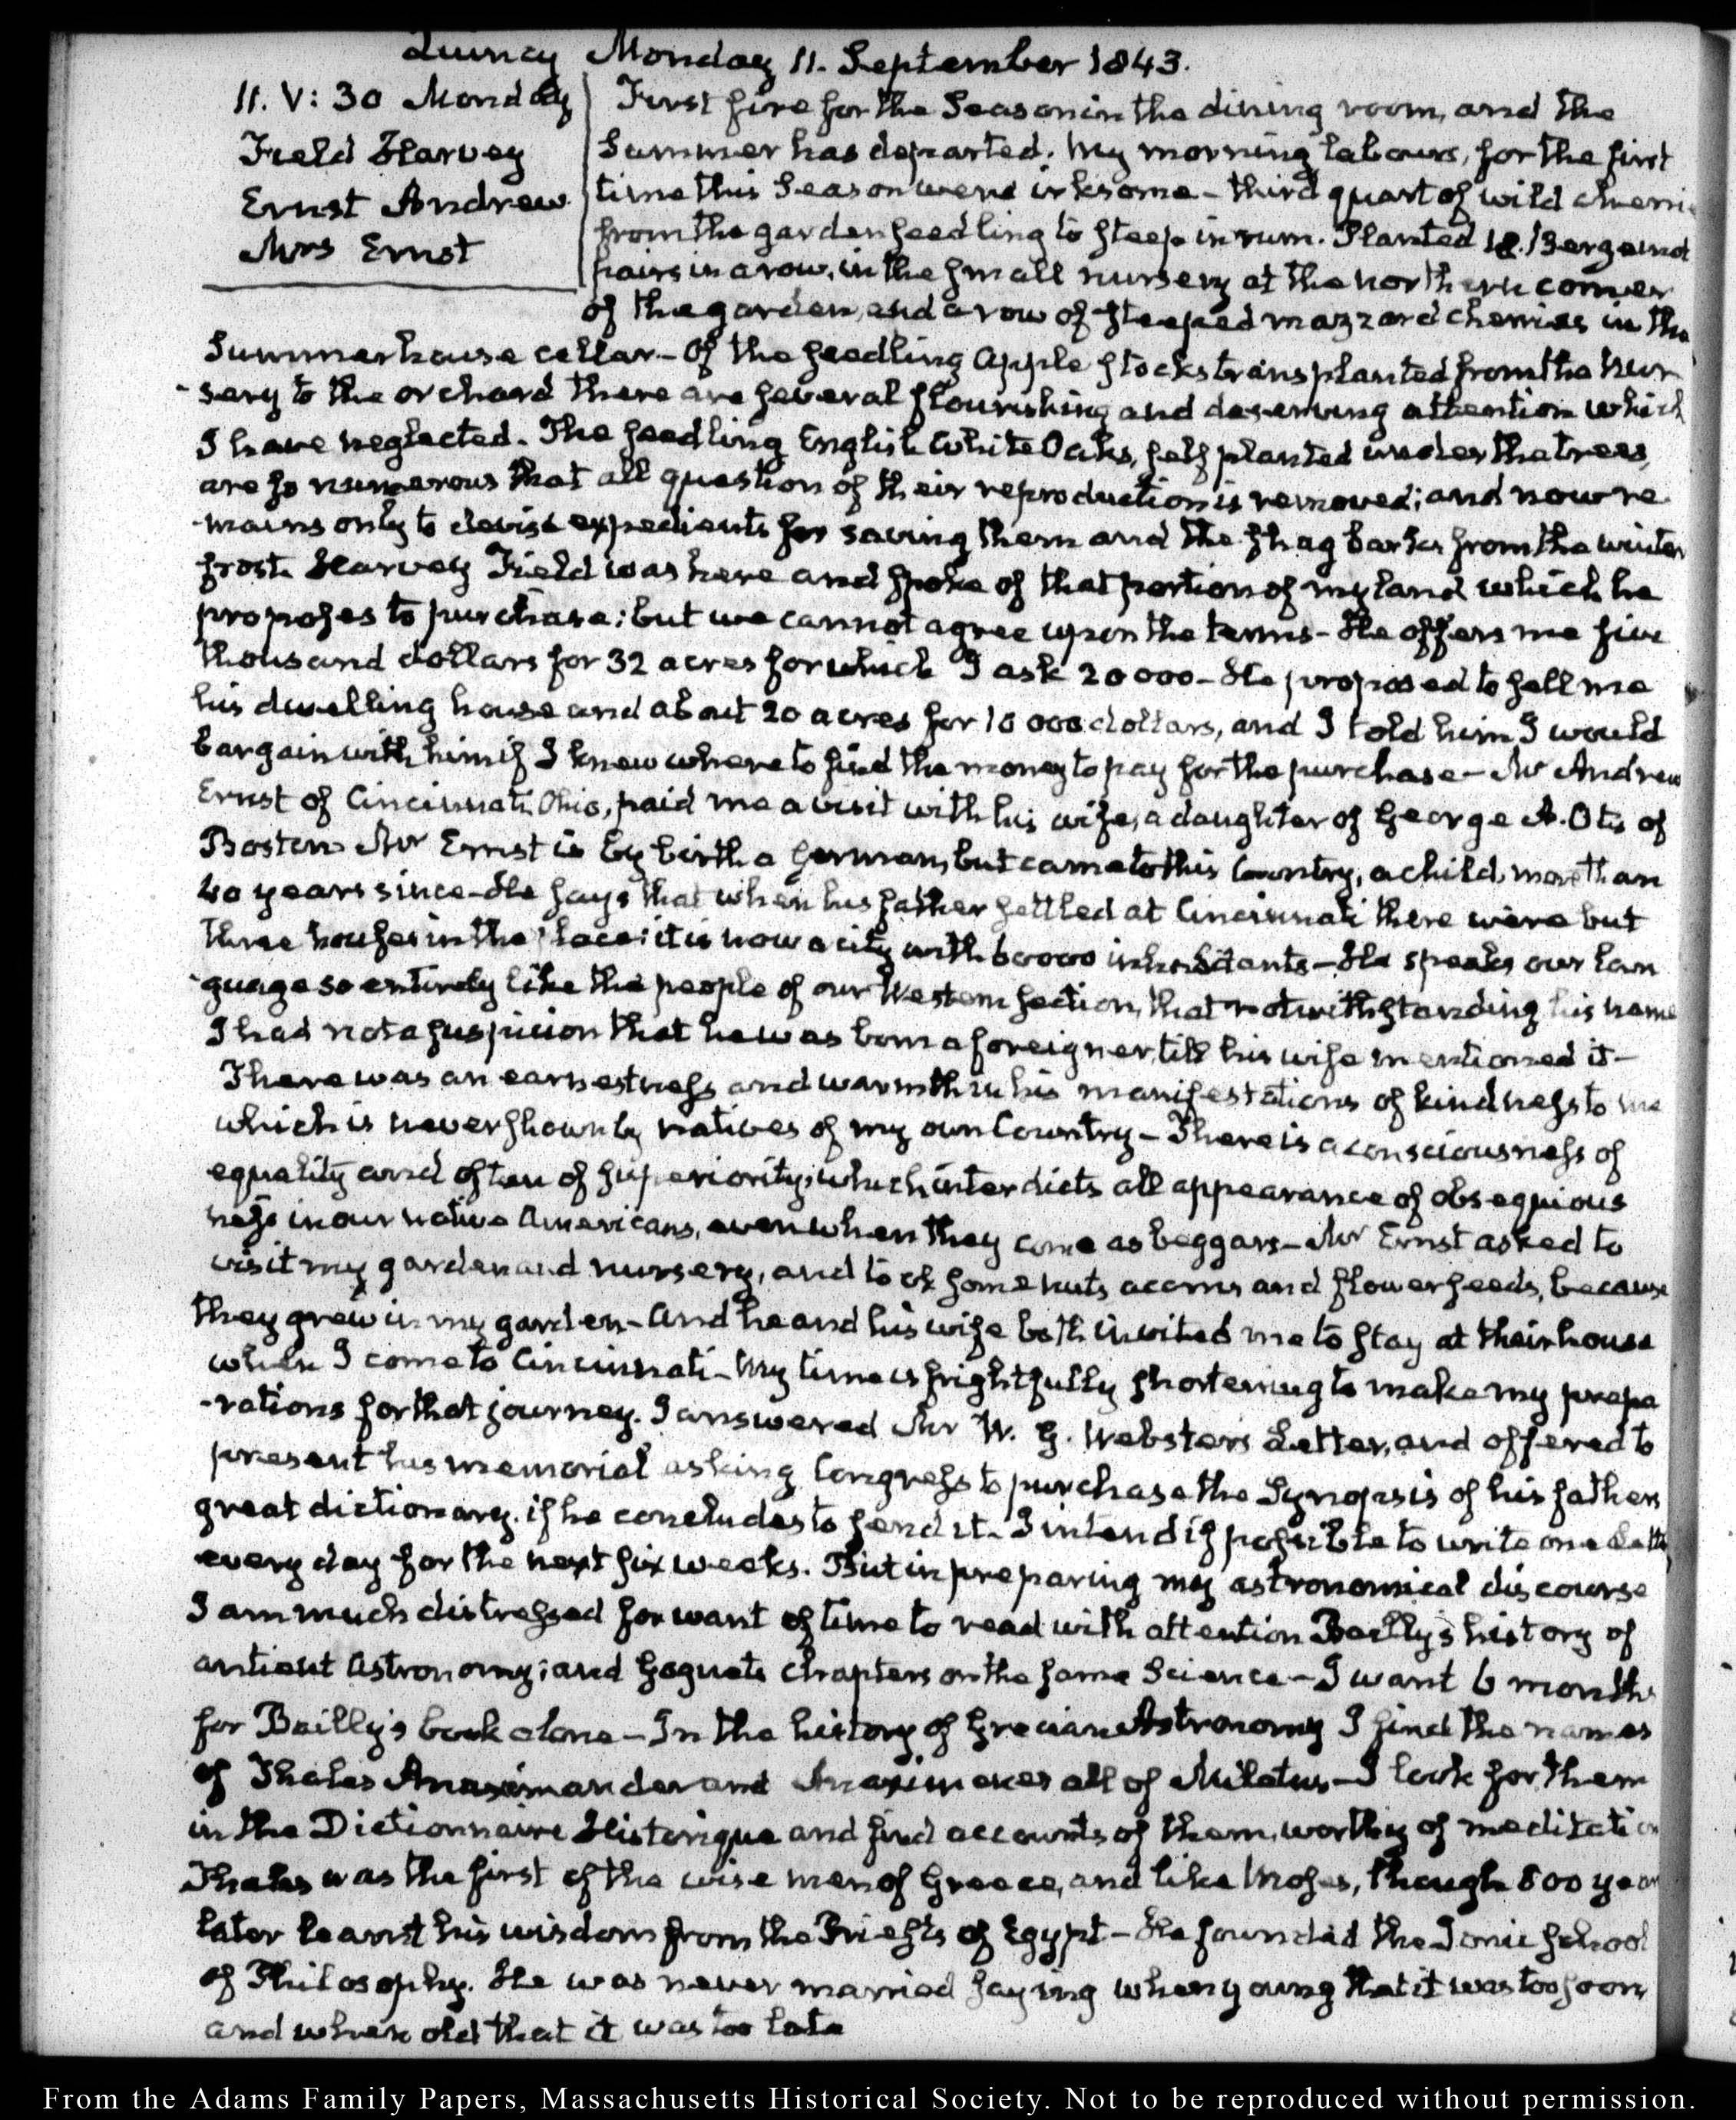 Quincy Monday 11. September 1843.
11. V: 30 Monday
Field Harvey
Ernst Andrew
Mrs Ernst
First fire for the Season in the dining room, and the
Summer has departed. My morning labours, for the first
time this Season were irksome – third quart of wild cherri
from the garden seedling to steep in rum. Planted 18. Bergamot
pairs in a row, in the small nursery at the northern corner
of the garden, and a row of steeped mazzard cherries in the
Summerhouse cellar – Of the seedling apple stocks transplanted from the nur
-sery to the orchard there are several flourishing and deserving attention which
I have neglected. The seedling English White Oaks, self planted under the trees,
are so numerous that all question of their reproduction is removed; and now re
-mains only to devise expedients for saving them and the shag barks from the winter
frost. Harvey Field was here and spoke of that portion of my land which he
proposes to purchase; but we cannot agree upon the terms – He offers me five
thousand dollars for 32 acres for which I ask 20000 – He proposed to sell me
his dwelling house and about 20 acres for 10 000 dollars, and I told him I would
bargain with him if I knew where to find the money to pay for the purchase – Mr Andrew
Ernst of Cincinnati, Ohio, paid me a visit with his wife, a daughter of George A. Otis of
Boston. Mr Ernst is by birth a german, but came to this Country, a child, more than
40 years since – He says that when his father settled at Cincinnati there were but
three houses in the place: it is now a city with 60000 inhabitants – He speaks our lan
-guage so entirely like the people of our Western section, that notwithstanding his name
I had not a suspicion that he was born a foreigner, till his wife mentioned it –
There was an earnestness and warmth in his manifestations of kindness to me
which is never shown by natives of my own Country – There is a consciousness of
equality and often of superiority, which interdicts all appearance of obsequious
ness in our native Americans, even when they come as beggars – Mr Ernst asked to
visit my garden and nursery, and took some nuts acorns and flower seeds, because
they grew in my garden – and he and his wife both invited me to stay at their house
when I come to Cincinnati – My time is frightfully shortening to make my prepa
-rations for that journey. I answered Mr W. G. Websters Letter, and offered to
present his memorial asking Congress to purchase the Synopsis of his fathers
great dictionary, if he concludes to send it – I intend if possible to write one Lett
every day for the next six weeks. But in preparing my astronomical discourse
I am much distressed for want of time to read with attention Bailly's history of
antient Astronomy; and Goguets chapters on the same Science – I want 6 months
for Bailly's book alone – In the history of Grecian Astronomy I find the names
of Thales Anaximander and Anaximenes all of Miletus – I look for them
in the Dictionnaire Historique and find accounts of them, worthy of meditation
Thales was the first of the wise men of Greece, and like Moses, though 800 year
later learnt his wisdom from the Priests of Egypt – He founded the Ionic school
of Philosophy. He was never married saying when young that it was too soon,
and when old that it was too late
From the Adams Family Papers, Massachusetts Historical Society. Not to be reproduced without permission.